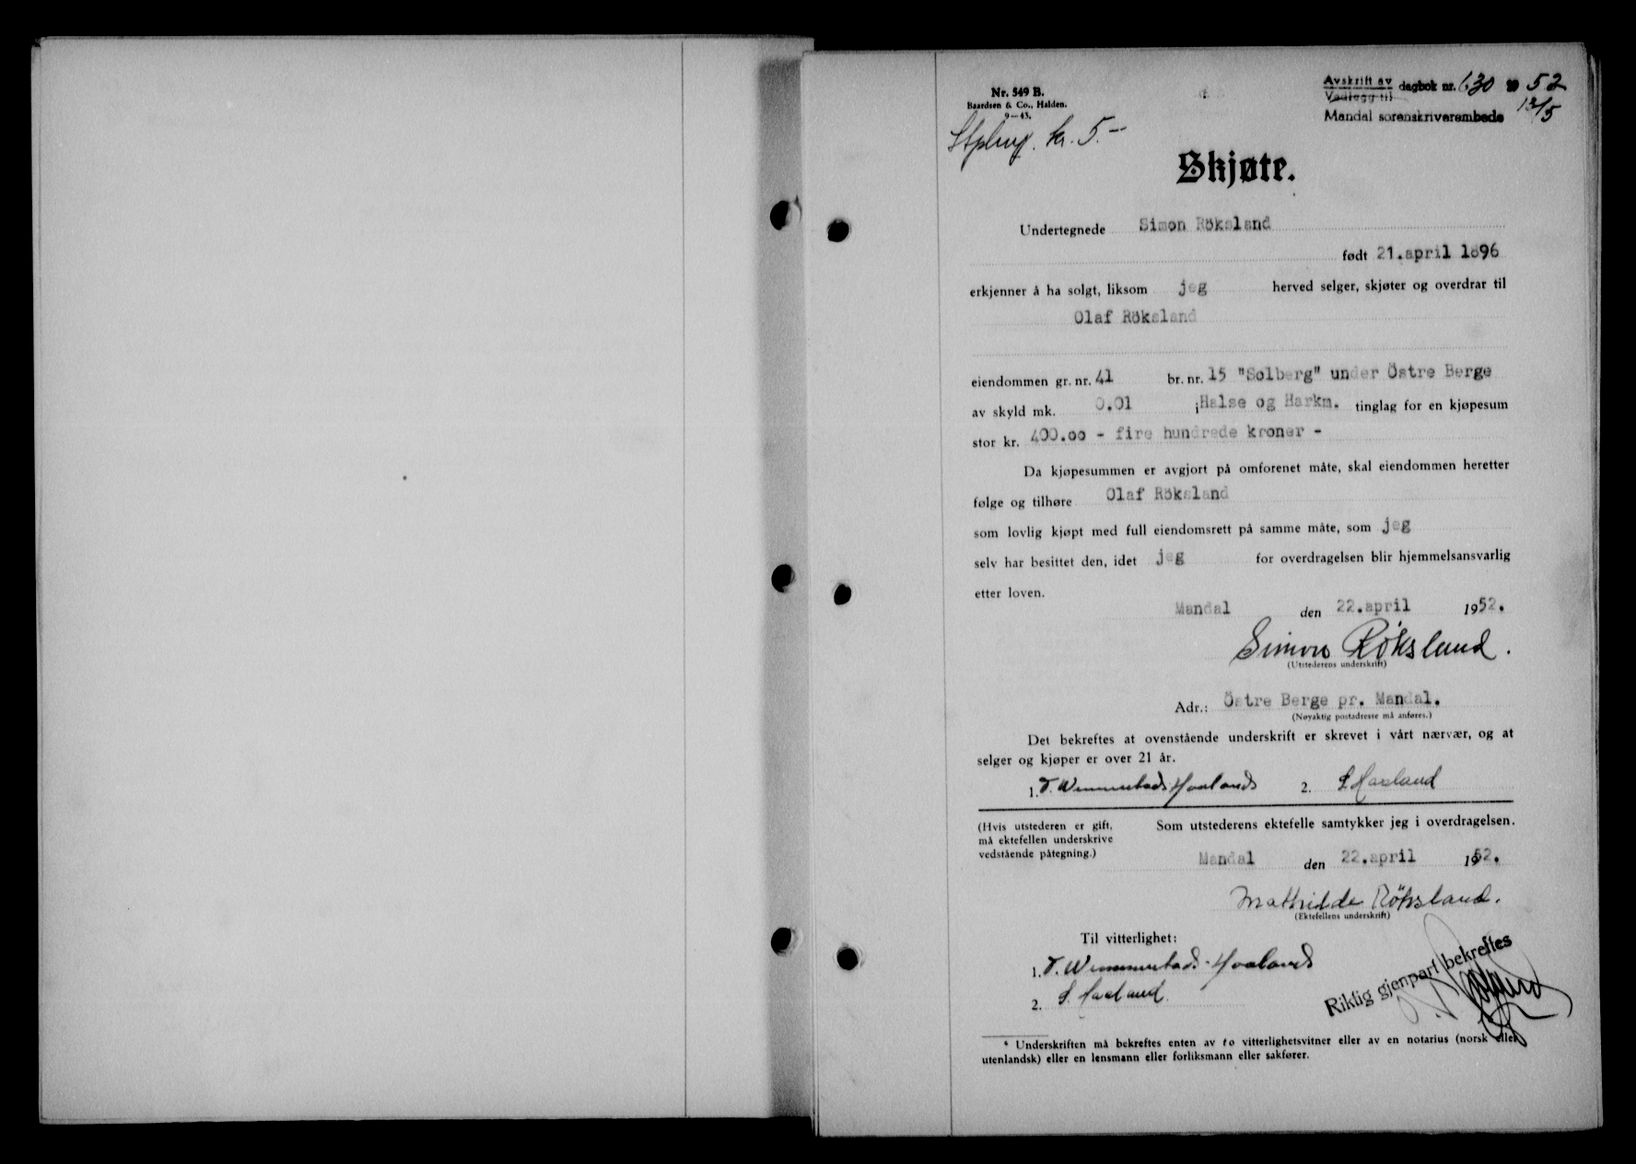 Nr. 549 B.
Baardsen & Co., Halden.
9—45.
kr. 5.-
Avskrift av
Vedlegg til
dagbok nr. 630 19 52
Mandal sorenskriverembede 13/5
Skjøte.
Undertegnede Simon Röksland
født 21.april 1896
erkjenner å ha solgt, liksom jeg herved selger, skjøter og overdrar til
Olaf Röksland
eiendommen gr. nr. 41 br. nr. 15 "Solberg" under Östre Berge
av skyld mk. 0.01 i Halse og Harkm. tinglag for en kjøpesum
stor kr. 400.oo - fire hundrede kroner -
Da kjøpesummen er avgjort på omforenet måte, skal eiendommen heretter
følge og tilhøre Olaf Röksland
som lovlig kjøpt med full eiendomsrett på samme måte, som jeg
selv har besittet den, idet jeg for overdragelsen blir hjemmelsansvarlig
etter loven.
Mandal den 22.april 1952.
Simon Röksland.
(Utstederens underskrift)
Adr.: Östre Berge pr. Mandal.
(Nøyaktig postadresse må anføres.)
Det bekreftes at ovenstående underskrift er skrevet i vårt nærvær, og at
selger og kjøper er over 21 år.
1. T. Wemmestad-Haaland 2. S. Haaland
(Hvis utstederen er gift,
må ektefellen underskrive
vedstående påtegning.)
Som utstederens ektefelle samtykker jeg i overdragelsen.
Mandal den 22.april 1952.
Mathilde Röksland.
(Ektefellens underskrift)
Til vitterlighet:
1. T. Wemmestad-Haaland
2. S. Haaland.
Riktig gjenpart bekreftes
* Underskriften må bekreftes enten av to vitterlighetsvitner eller av en notarius (norsk eller
utenlandsk) eller en lensmann eller forliksmann eller sakfører.